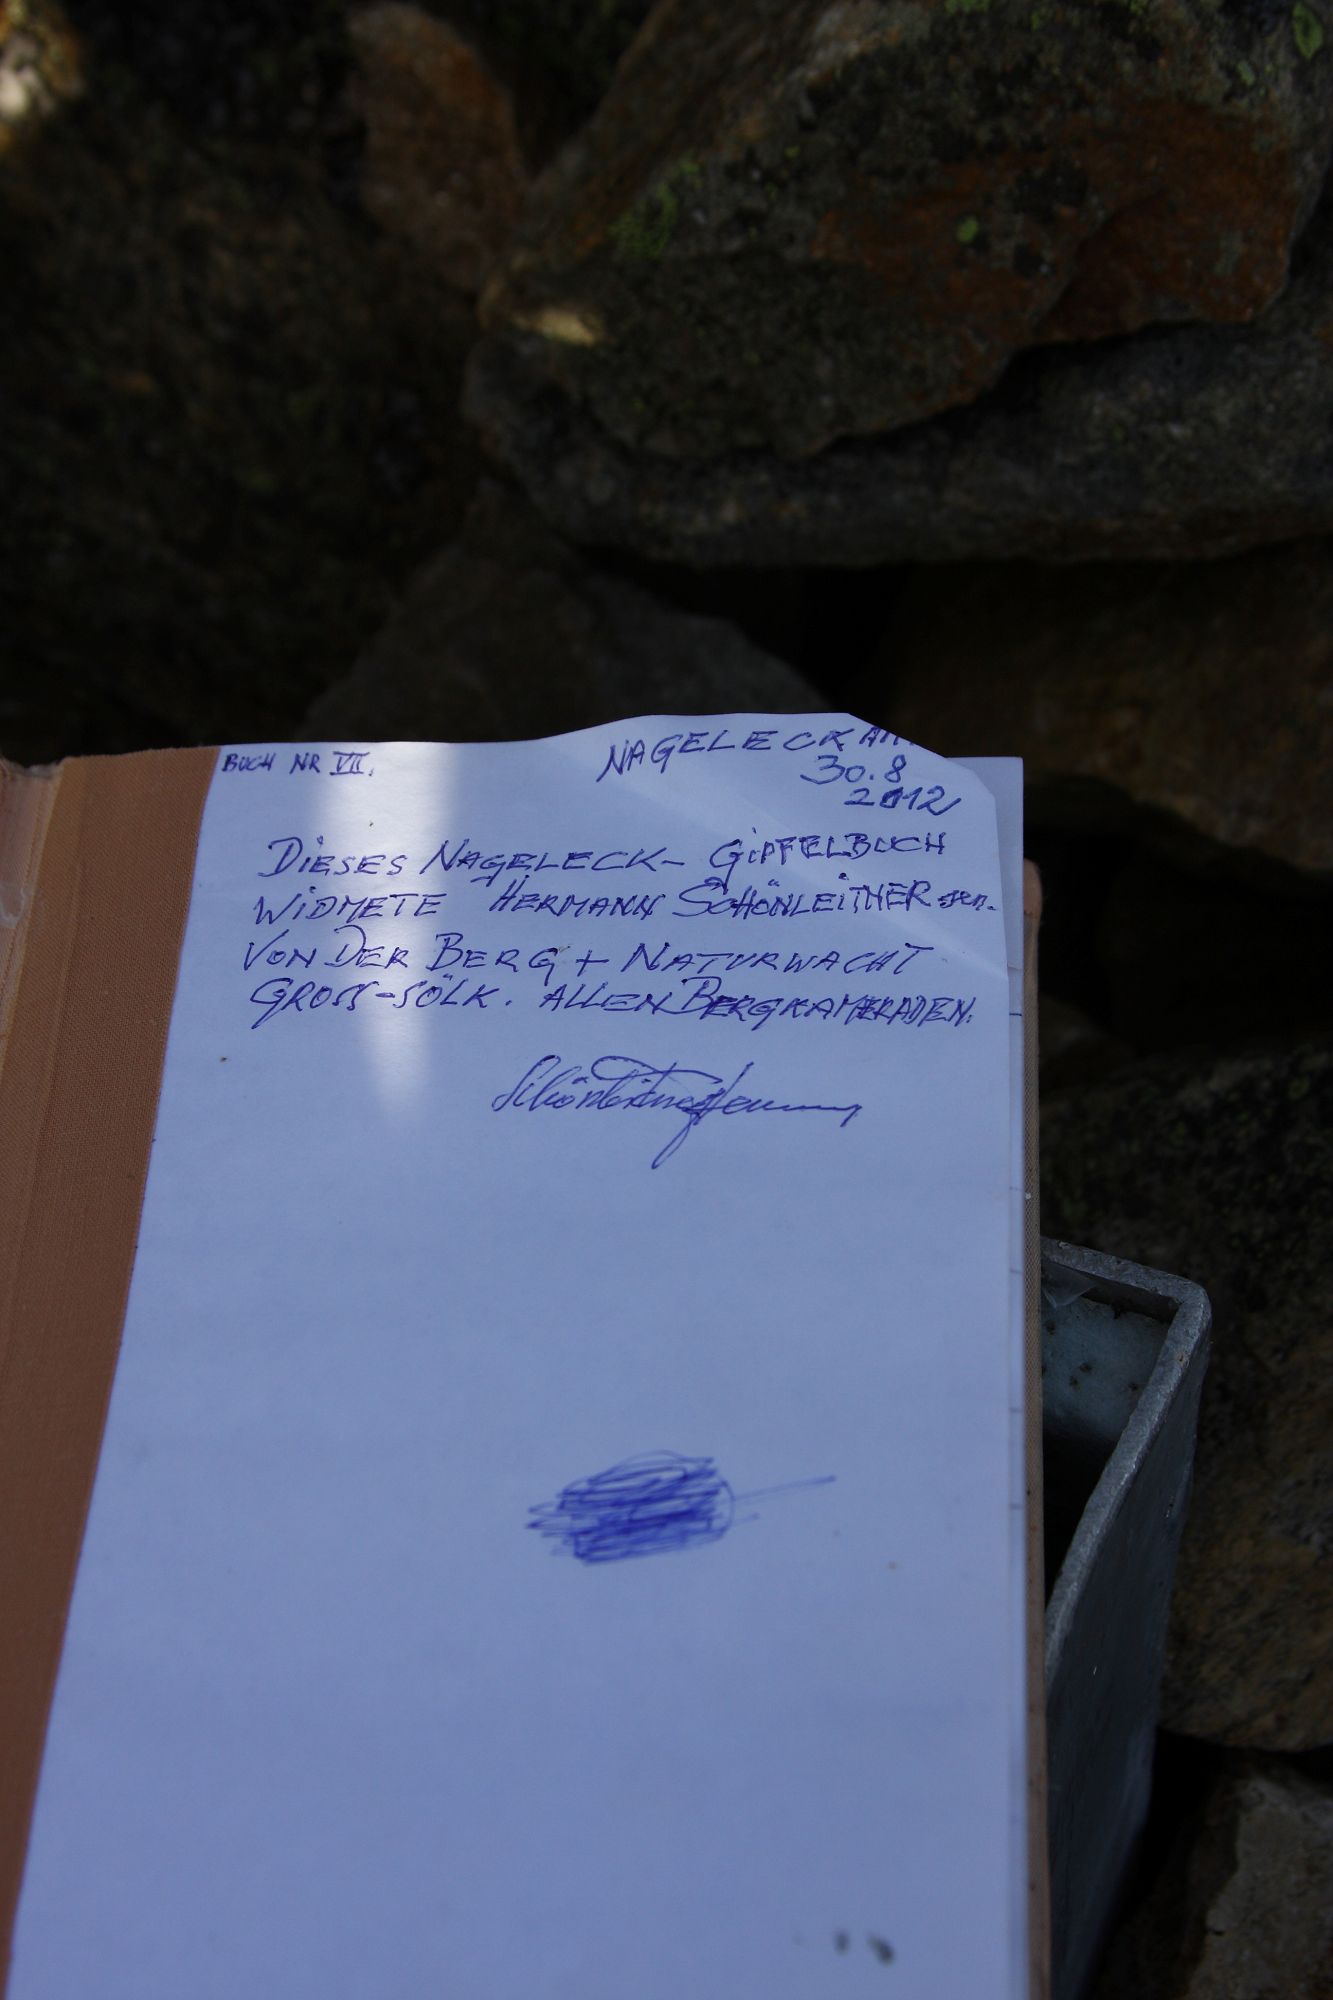 BUCH NR VII.
NAGELECK AM
30.8
2012
DIESES NAGELECK- GIPFELBUCH
WIDMETE HERMANN SCHÖNLEITNER sen.
VON DER BERG + NATURWACHT
GROSS-SÖLK. ALLEN BERGKAMERADEN.
Schönleitner Hermann